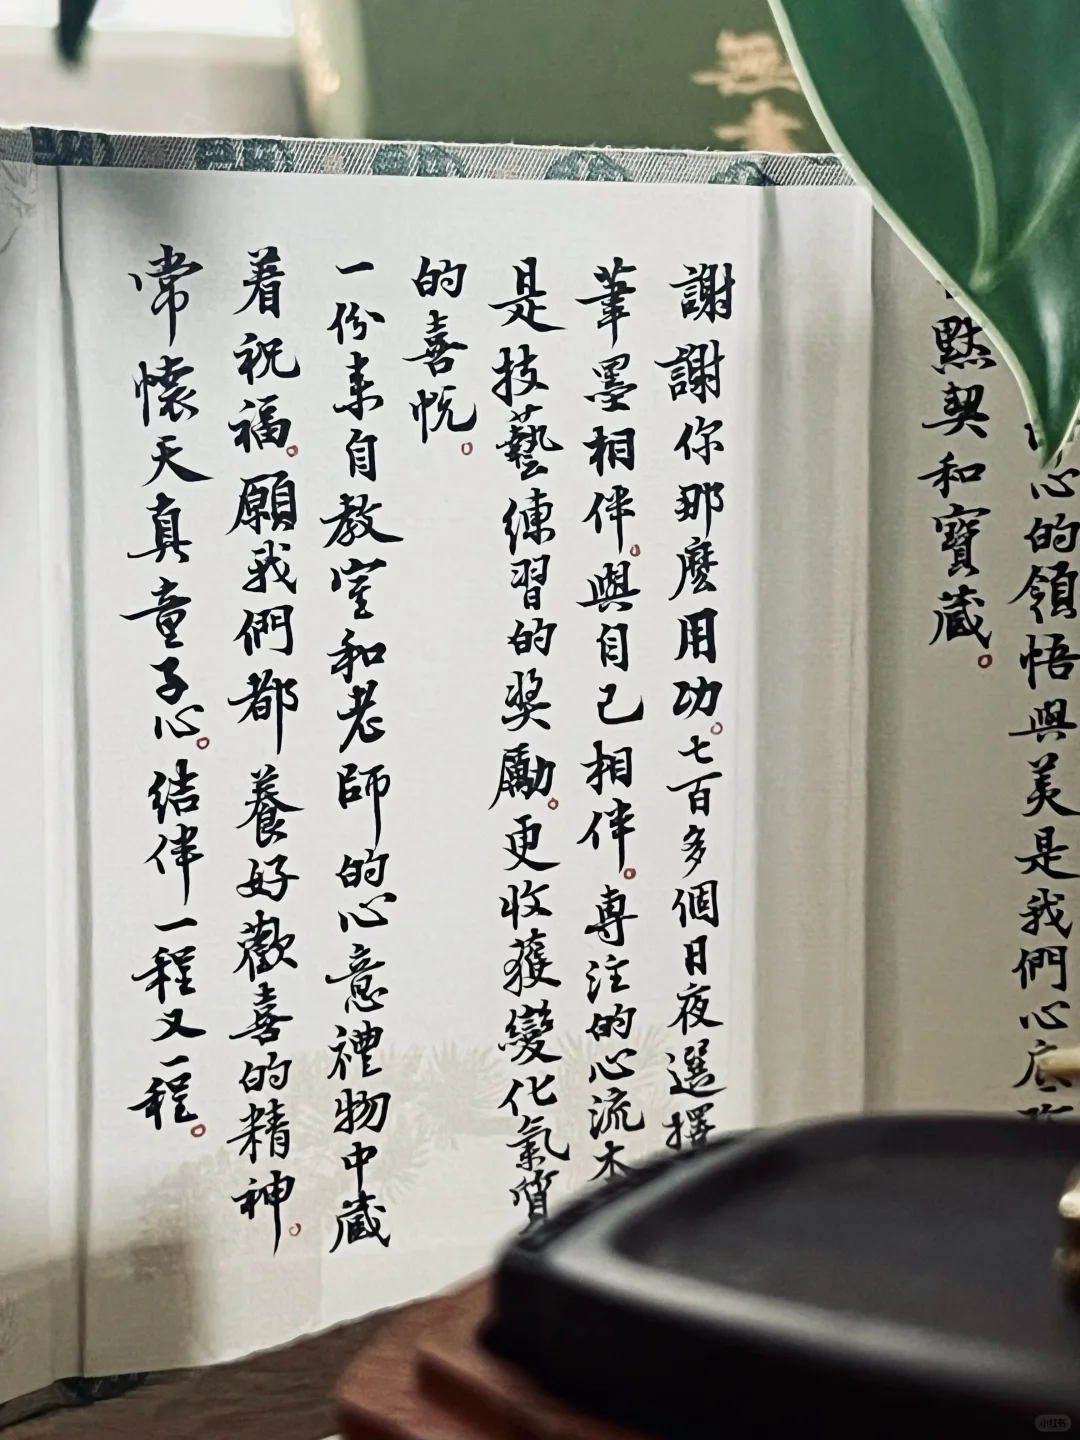 心的領悟與美是我們心底
默契和寶藏。
謝謝你那麽用功。七百多個日夜選擇
筆墨相伴。與自己相伴。專注的心流
是技藝練習的奖勵。更收獲變化氣質
的喜悅。
一份来自教室和老師的心意禮物中藏
着祝福。願我們都養好歡喜的精神
常懷天真童子心。结伴一程又一程。
小红书